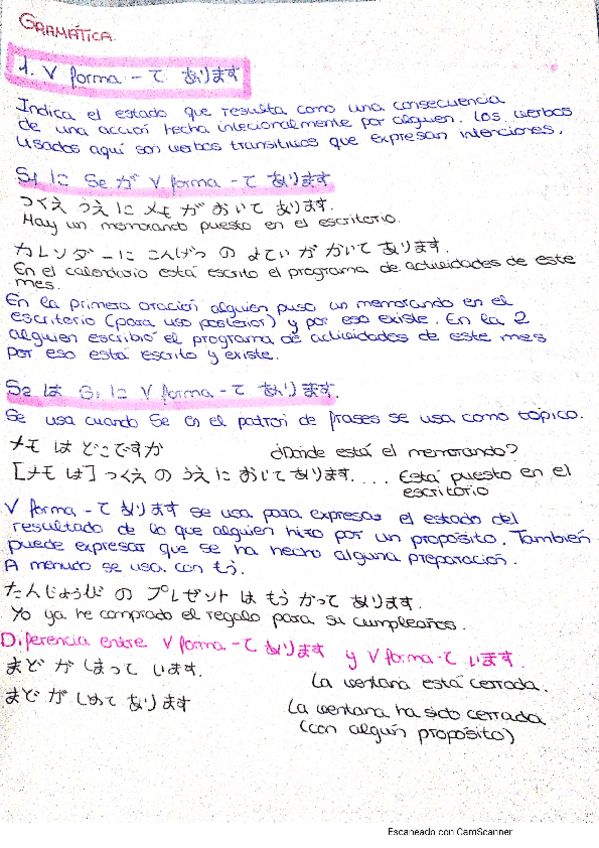 GRAMÁTICA
1. V forma - て あります
Indica el estado que resulta como una consecuencia
de una acción hecha intecionalmente por alguien. Los verbos
usados aquí son verbos transitivos que expresan intenciones.
S1 に S2 が V forma - て あります
つくえ うえ に メモ が おいて あります.
Hay un memorando puesto en el escritorio.
カレンダーに こんげつ の よてい が かいて あります.
En el calendario está escrito el programa de actividades de este
mes.
En la primera oración alguien puso un memorando en el
escritorio (para uso posterior) y por eso existe. En la 2
alguien escribió el programa de actividades de este mes
por eso está escrito y existe.
S2 は S1 に V forma - て あります.
Se usa cuando S2 en el patrón de frases se usa como tópico.
メモ は どこですか ¿Donde está el memorando?
[メモ は] つくえ の うえ に おいて あります.... Está puesto en el
escritorio
V forma - て あります se usa para expresar el estado del
resultado de lo que alguien hizo por un propósito. También
puede expresar que se ha hecho alguna preparación.
A menudo se usa con もう.
たんじょうび の プレゼント は もう かって あります.
Yo ya he comprado el regalo para su cumpleaños.
Diferencia entre V forma - て あります y V forma - て います.
まど が しまって います. La ventana está cerrada.
まど が しめて あります La ventana ha sido cerrada
(con algún propósito)
Escaneado con CamScanner